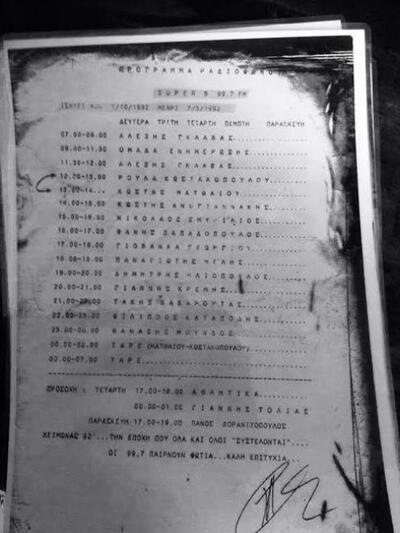 ΠΡΟΓΡΑΜΜΑ ΡΑΔΙΟΦΩΝΟ
SUPER B 99.7 FM
ΙΣΧΥΕΙ ΑΠΟ 7/10/1992 ΜΕΧΡΙ 7/3/1992
ΔΕΥΤΕΡΑ ΤΡΙΤΗ ΤΕΤΑΡΤΗ ΠΕΜΠΤΗ ΠΑΡΑΣΚΕΥΗ
07.00-09.00 ΑΛΕΞΗΣ ΓΚΛΑΒΑΣ
09.00-11.30 ΟΜΑΔΑ ΕΝΗΜΕΡΩΣΗΣ
11.30-12.00 ΑΛΕΞΗΣ ΓΚΛΑΒΑΣ
12.00-13.00 ΡΟΥΛΑ ΚΩΣΤΑΚΟΠΟΥΛΟΥ
13.00-14... ΚΩΣΤΗΣ ΜΑΤΘΑΙΟΥ
14.00-15.00 ΚΩΣΤΗΣ
15.00-16.00 ΝΙΚΟΛΑΟΣ
16.00-17.00 ΦΑΝΗΣ ΠΑΠΑΔΟΠΟΥΛΟΣ
17.00-18.00 ΓΙΟΒΑΝΚΑ ΓΕΩΡΓΙΟΥ
18.00-19.00 ΠΑΝΑΓΙΩΤΗΣ
19.00-20.00 ΔΗΜΗΤΡΗΣ ΗΛΙΟΠΟΥΛΟΣ
20.00-21.00 ΓΙΑΝΝΗΣ ΚΡΕΜΗΣ
21.00-22.00 ΤΑΚΗΣ
22.00-23.00 ΦΙΛΙΠΠΟΣ
23.00-00.00 ΘΑΝΑΣΗΣ
00.00-02.00 TAPE (ΜΑΤΘΑΙΟΥ-ΚΩΣΤΑΚΟΠΟΥΛΟΥ)
00.00-07.00 TAPE
ΠΡΟΣΟΧΗ : ΤΕΤΑΡΤΗ 17.00-18.00 ΑΘΛΗΤΙΚΑ
00.00-01.00 ΓΙΑΝΝΗΣ ΤΟΛΙΑΣ
ΠΑΡΑΣΚΕΥΗ 17.00-19.00 ΠΑΝΟΣ ΒΟΡΑΝΤΖΟΠΟΥΛΟΣ
ΧΕΙΜΩΝΑΣ 92'...ΤΗΝ ΕΠΟΧΗ ΠΟΥ ΟΛΑ ΚΑΙ ΟΛΟΙ "ΣΥΣΤΕΛΟΝΤΑΙ"....
ΟΙ 99.7 ΠΑΙΡΝΟΥΝ ΦΩΤΙΑ...ΚΑΛΗ ΕΠΙΤΥΧΙΑ...